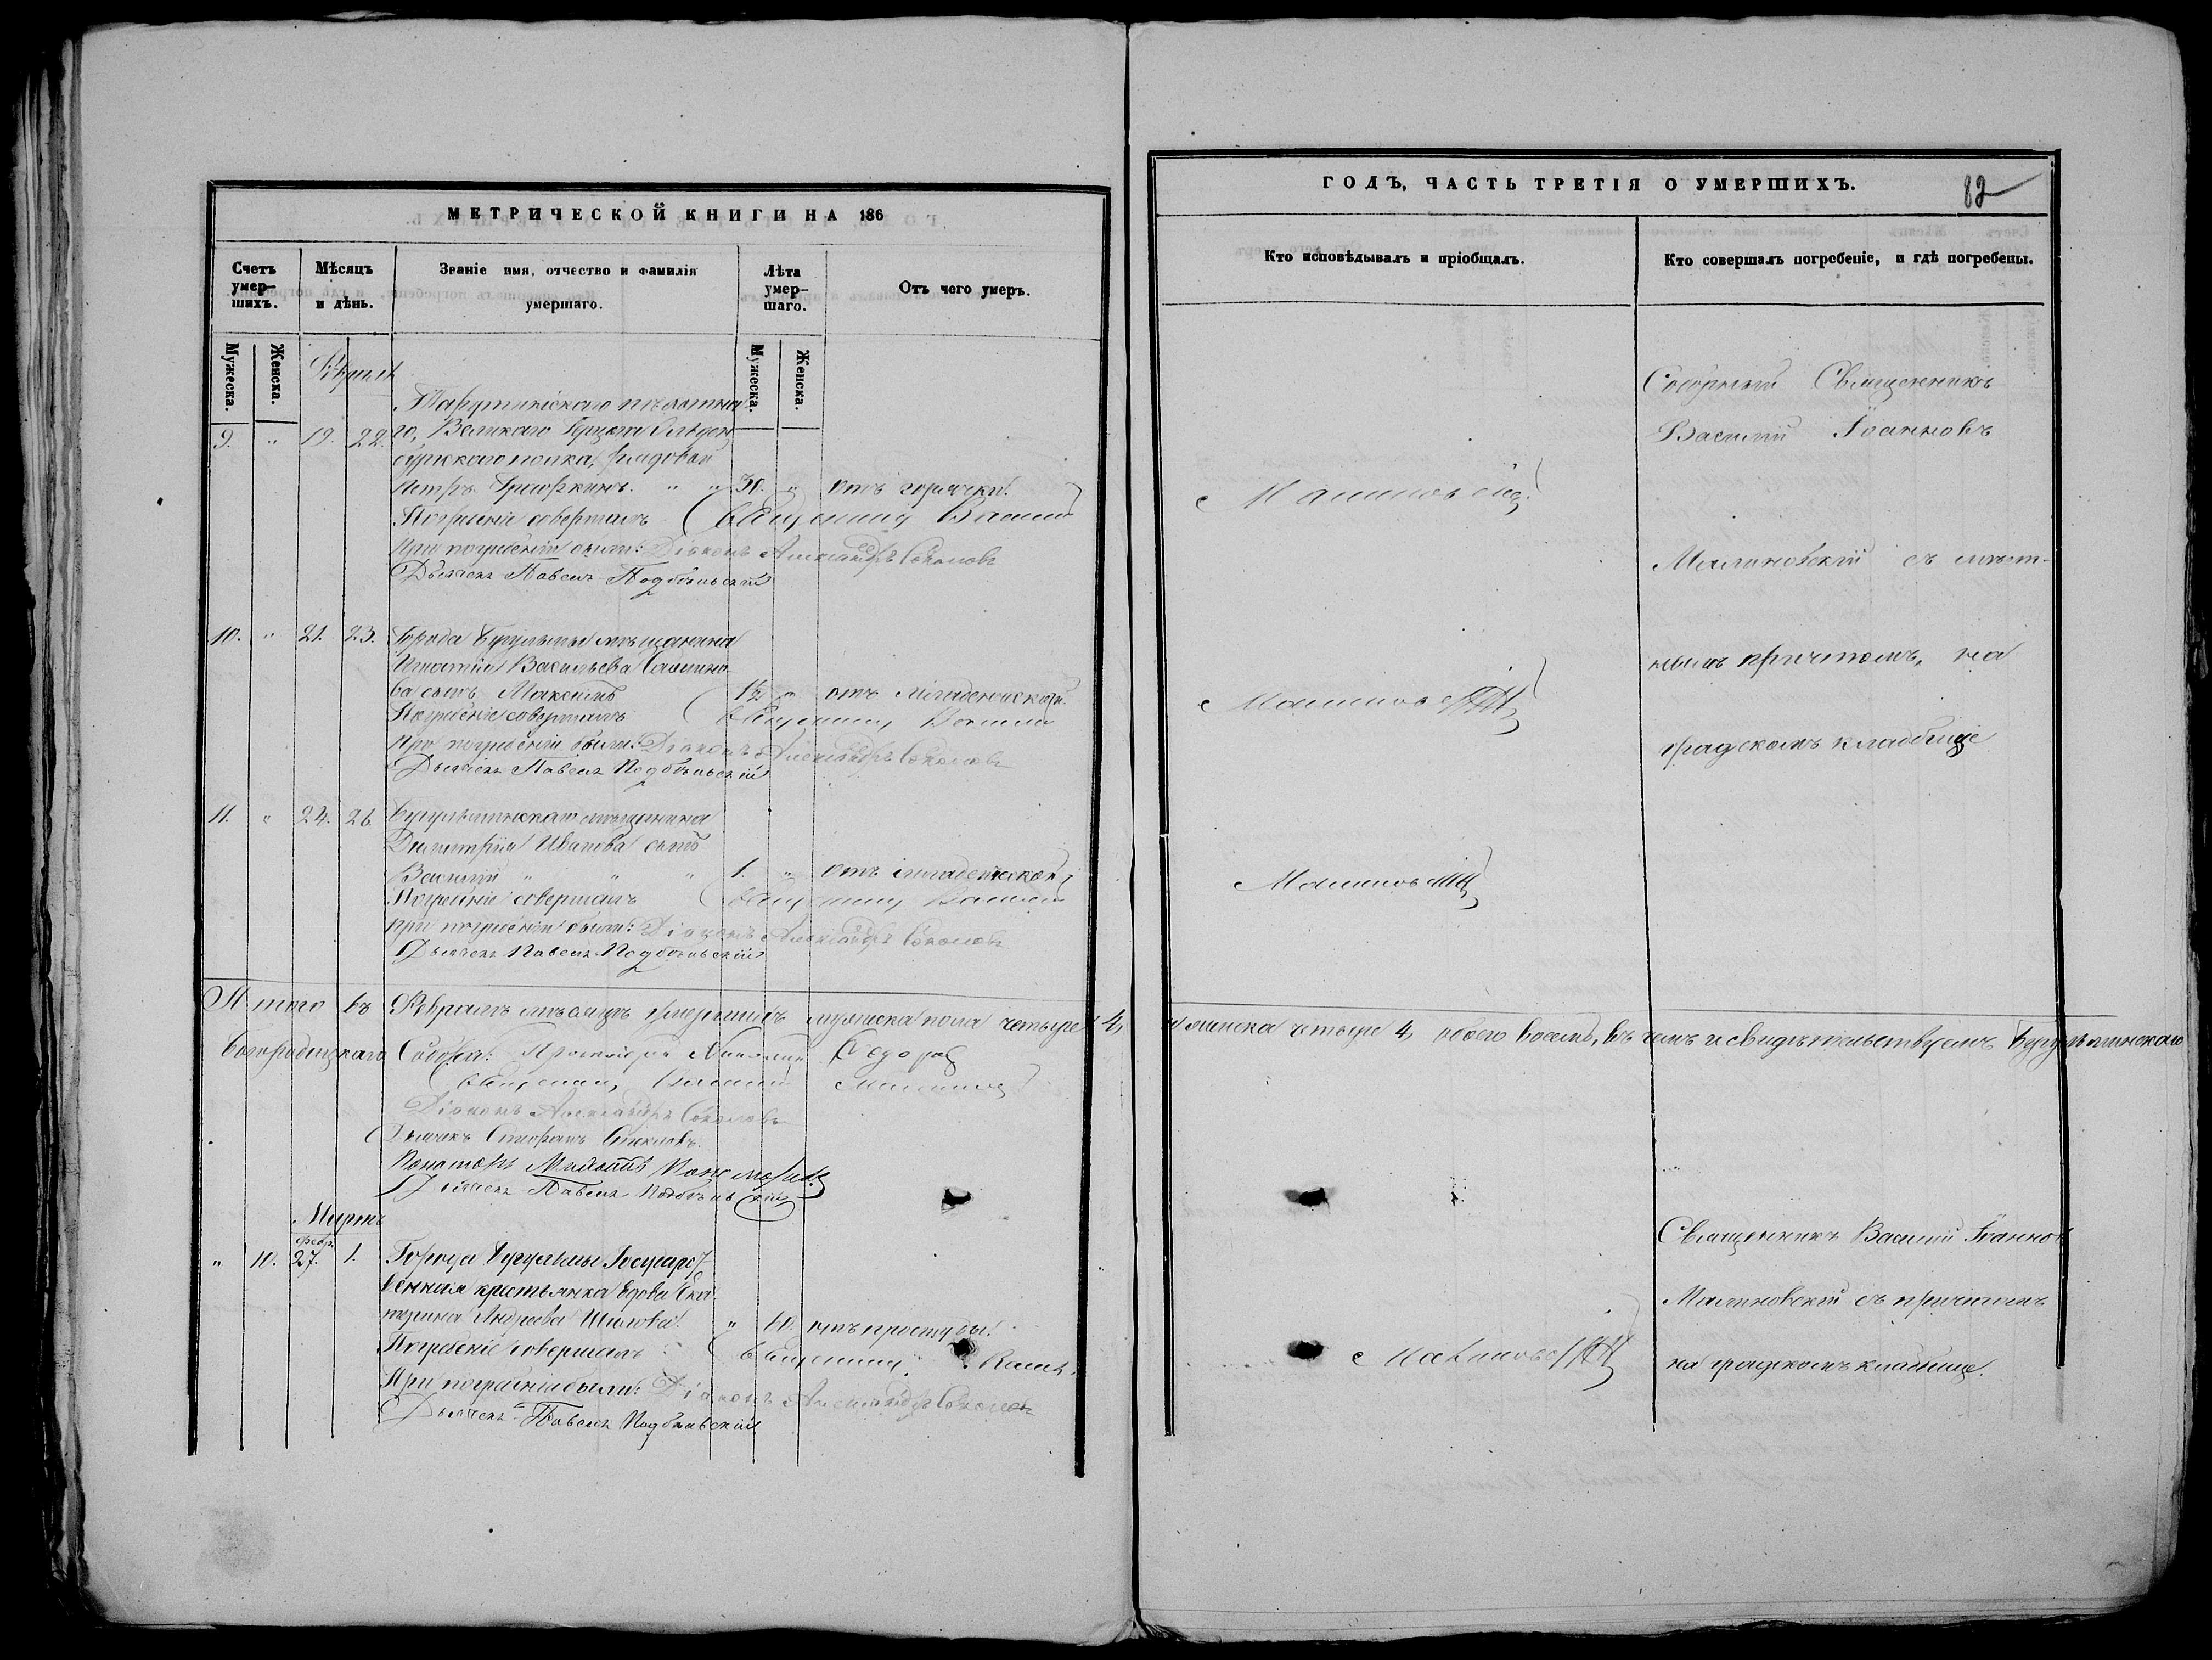 МЕТРИЧЕСКОЙ КНИГИ НА 186
Счетъ умер-шихъ.
Мѣсяцъ и дѣнь.
Званіе имя, отчество и фамилія умершаго.
Лѣта умер-шаго.
Отъ чего умеръ.
Мужеска.
Женска.
Мужеска.
Женска.
Тарутинскаго пѣхотна
9. " 19. 22. го, Великаго Герцога Ольден
бургскаго полка, рядовой
Петръ " " 30. " отъ горячки.
Погребеніе совершалъ Священникъ Василій
При погребеніи были: Діаконъ Александръ Соколовъ
Дьячекъ Павелъ Подбѣльскій
10. " 21. 23. Города Бугульмы мѣщанина
Игнатія Васильева
ва сынъ Максимъ 1½ " отъ младенческой.
Погребеніе совершалъ Священникъ Василій
При погребеніи были: Діаконъ Александръ Соколовъ
Дьячекъ Павелъ Подбѣльскій
11. " 24. 26. Бугульминскаго мѣщанина
Димитрія Иванова сынъ
Василій " " " 1. " отъ младенческой
Погребеніе совершалъ Священникъ Василій
При погребеніи были: Діаконъ Александръ Соколовъ
Дьячекъ Павелъ Подбѣльскій
Итого въ Февралѣ мѣсяцѣ умершихъ мужеска пола четыре 4,
Богородицкаго Собора: Протоіерей Николай Ѳедоровъ
Священникъ Василій Малиновскій
Діаконъ Александръ Соколовъ
Дьячекъ
Пономарь
Дьячекъ Павелъ Подбѣльскій
Мартъ
февр.
" 10. 27. 1. Города Бугульмы Государст
венная крестьянка вдова Ека
терина Андреева Шилова. " 60. отъ простуды.
Погребеніе совершалъ Священникъ Васил.
При погребеніи были: Діаконъ Александръ Соколовъ
Дьячекъ Павелъ Подбѣльскій
ГОДЪ, ЧАСТЬ ТРЕТІЯ О УМЕРШИХЪ.
82
Кто исповѣдывалъ и пріобщалъ.
Кто совершалъ погребеніе, и гдѣ погребены.
Соборный Священникъ
Василій Іоанновъ
Малиновскій
Малиновскій съ мѣст-
нымъ причтомъ, на
Малиновскій
градскомъ кладбище
Малиновскій
женска четыре 4, обоего восемь, въ чемъ и свидѣтельствуемъ Бугульминскаго
Священникъ Василій Іоаннов
Малиновскій съ причтомъ
Малиновскій
на градскомъ кладбище.